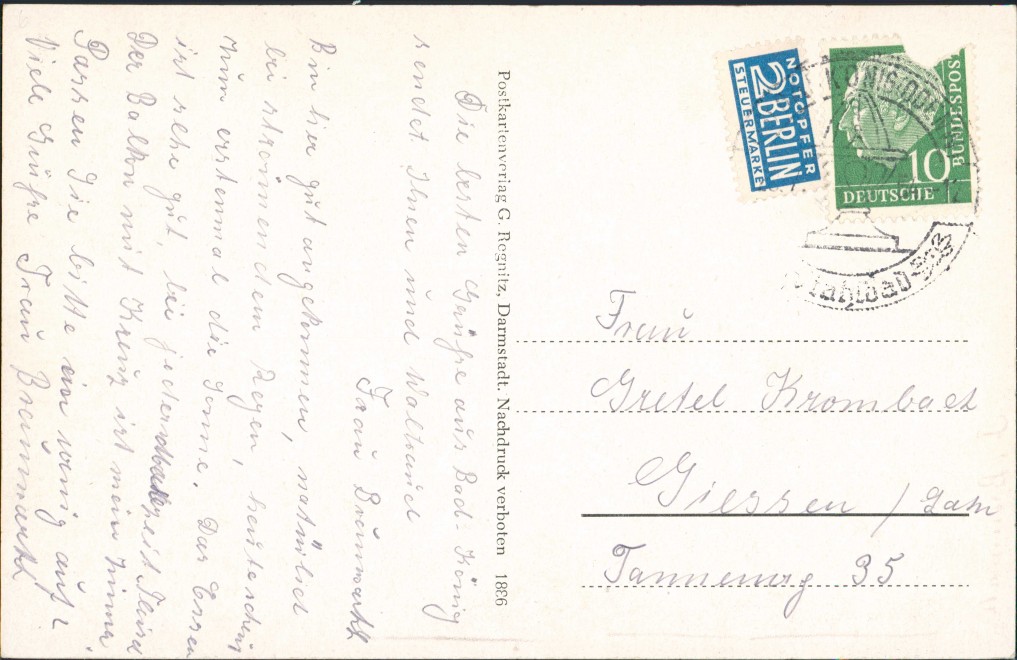 Die besten Grüsse aus Bad-König
sendet Ihnen und Waltraud
Frau Braunwarth
Bin hier gut angekommen, natürlich
bei strömendem Regen, heute scheint
zum erstenmal die Sonne. Das Essen
ist sehr gut, bei jeder Mahlzeit Fleisch
Der Balkon mit Kreuz ist mein Zimmer
Passen Sie bitte ein wenig auf.
Viele Grüße Frau Braunwarth
Postkartenverlag G. Regnitz, Darmstadt. Nachdruck verboten 1886
NOTOPFER
2 BERLIN
STEUERMARKE
10
DEUTSCHE
BUNDESPOST
Frau
Gretel Krombach
Giessen / Lahn
Tannenweg 35